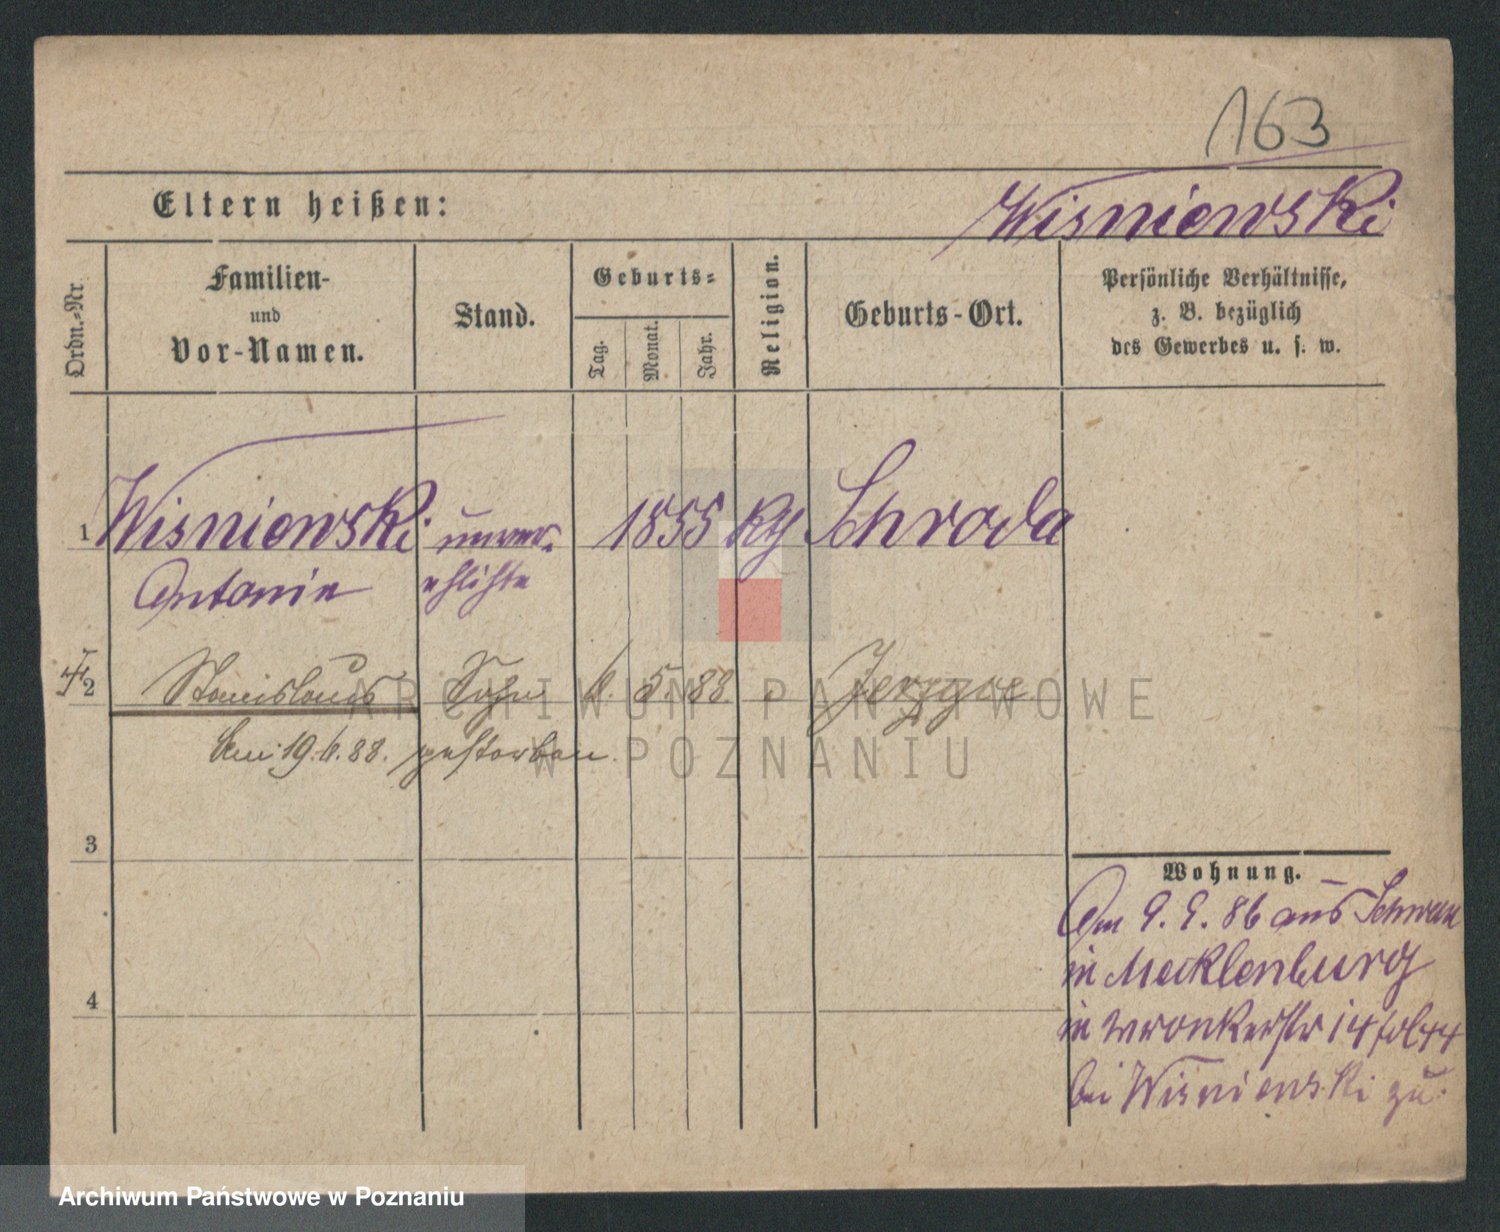 163
Eltern heißen:
Wisniewski
Ordn.-Nr.
Familien-
und
Vor-Namen.
Stand.
Geburts-
Tag.
Monat.
Jahr.
Religion.
Geburts-Ort.
Persönliche Verhältnisse,
z. B. bezüglich
des Gewerbes u. s. w.
1 Wisniewski unver- 1855 Schroda
Antonie ehlichte
2 Stanislaus Sohn 6. 5. 88.
am 19. 6. 88. gestorben.
3
4
Wohnung.
Am 9. 9. 86 aus Schwan
in Mecklenburg
in Wronkerstr 14 fol 44
bei Wisniewski zu.
ARCHIWUM PAŃSTWOWE
W POZNANIU
Archiwum Państwowe w Poznaniu